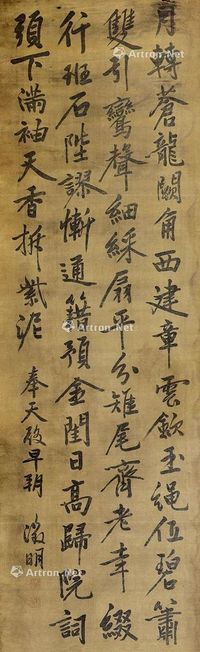 月轉蒼龍闕角西建章雲歛玉繩低碧簫
雙引鸞聲細綵扇平分雉尾齊老幸綴
行班石陛謬慚通籍預金閨日高歸院詞
頭下滿袖天香拆紫泥
奉天殿早朝 徵明
Artron.Net
Artron.Net
Artron.Net